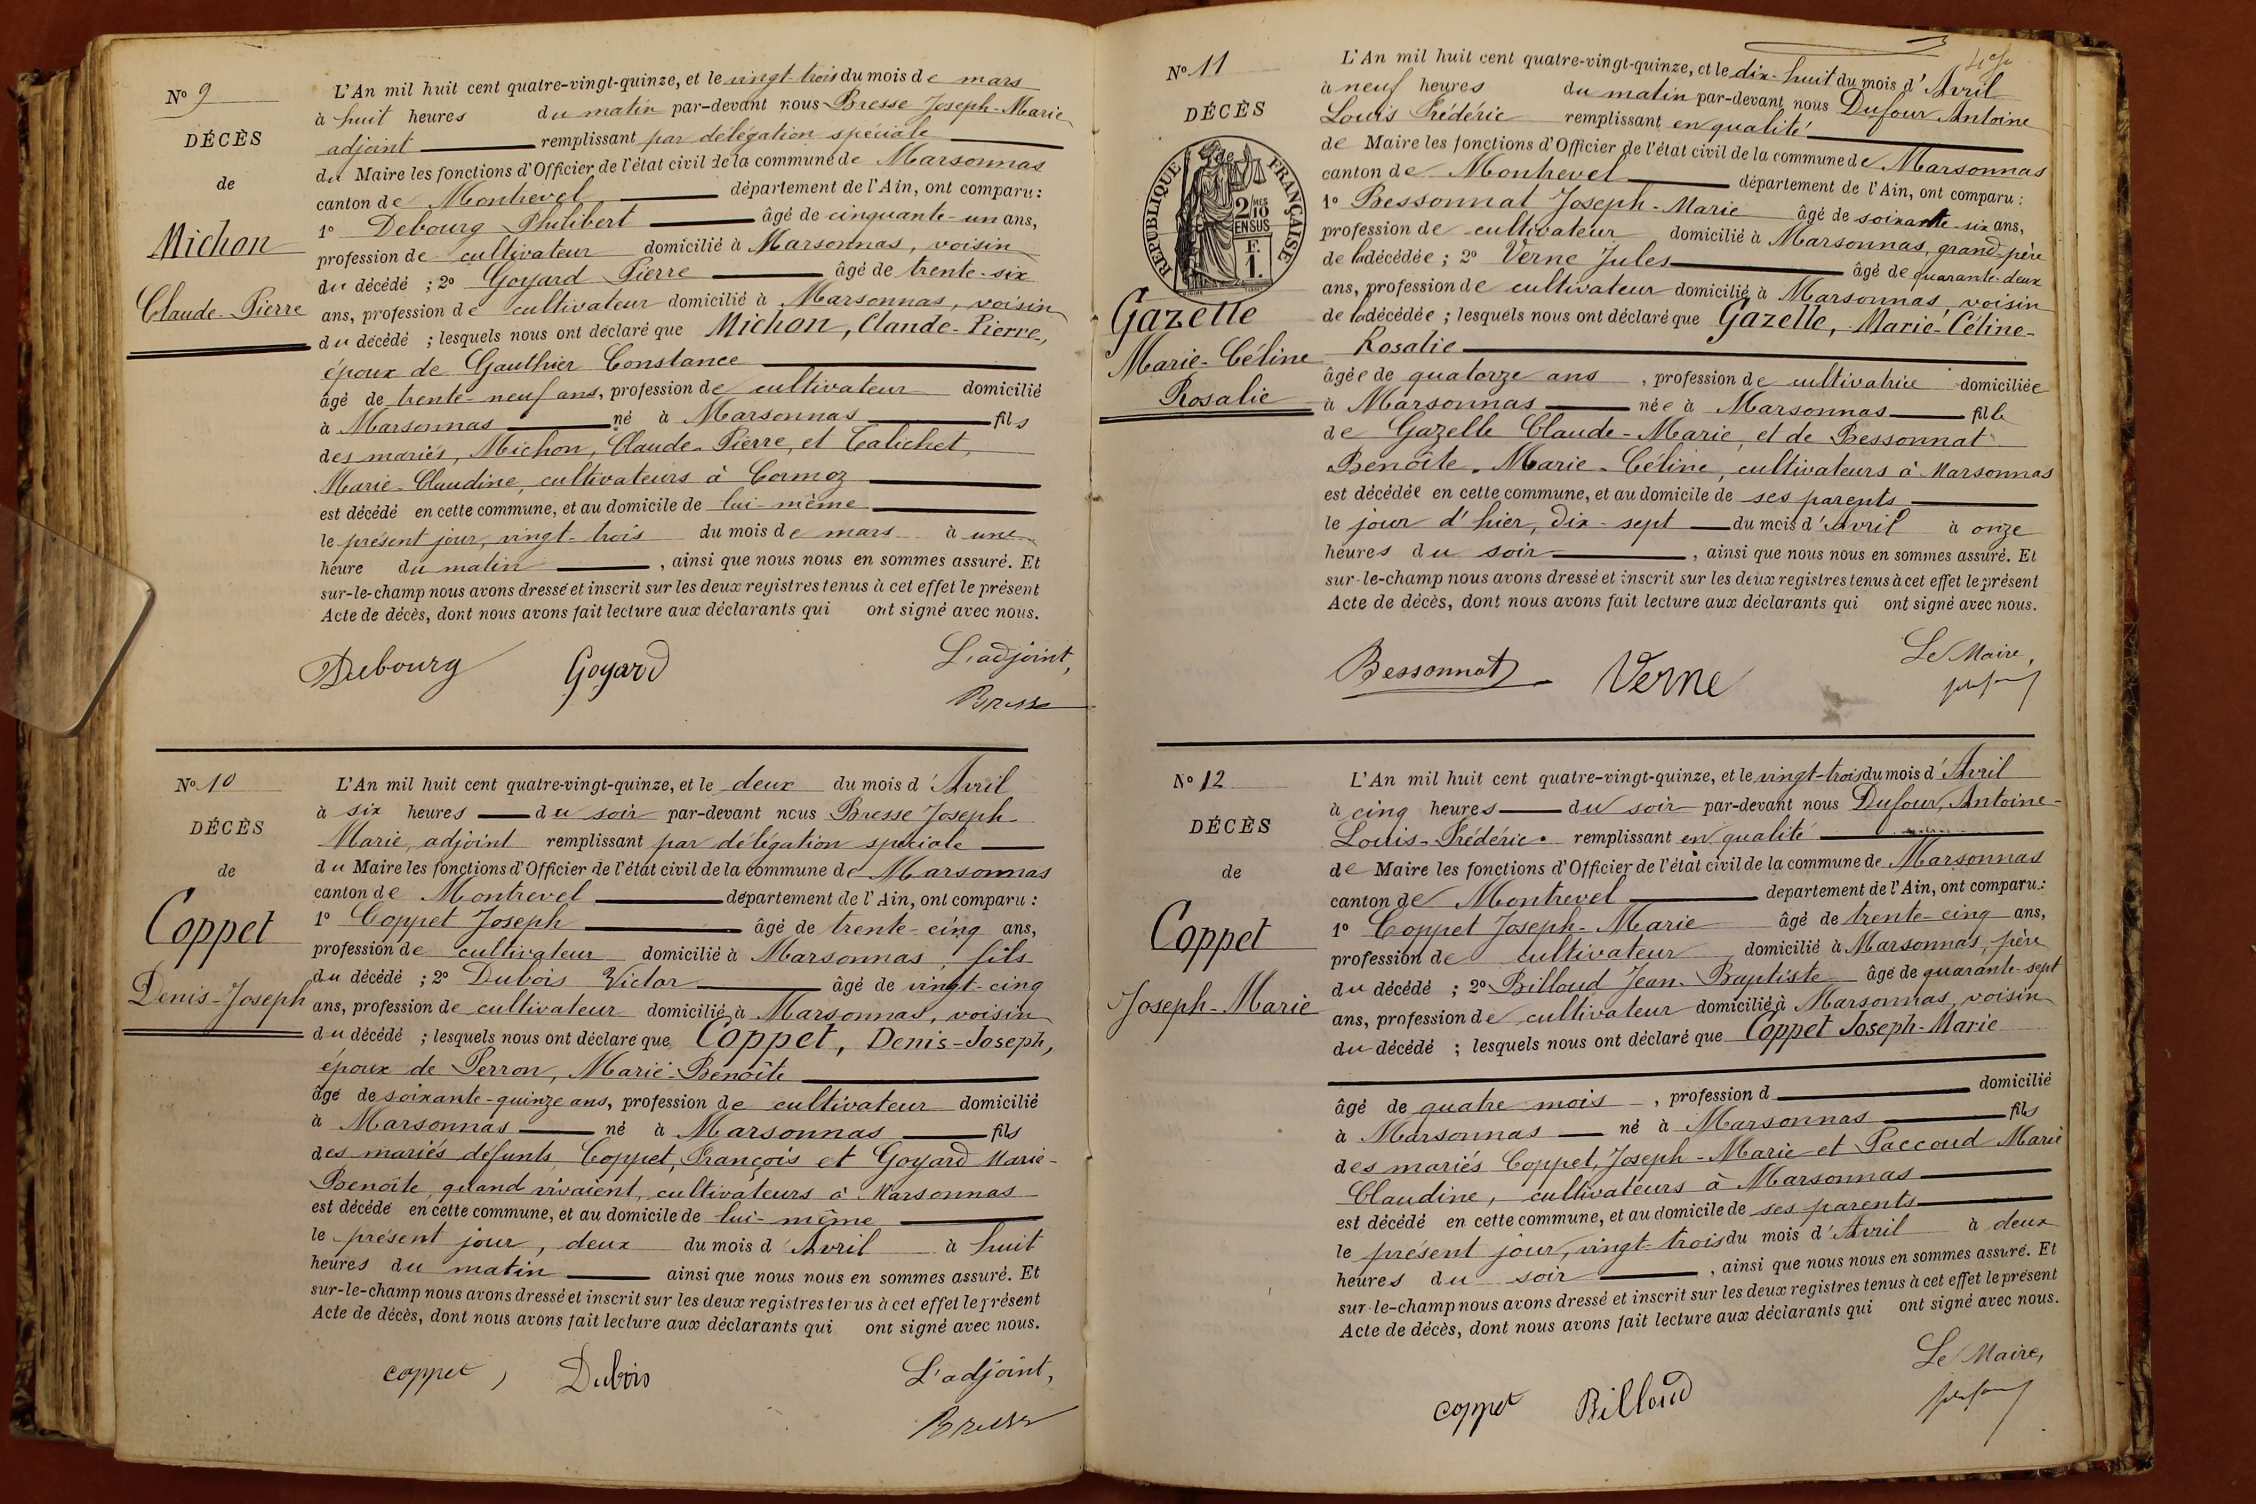 Nº 9
DÉCÈS
de
Michon
Claude-Pierre
L'An mil huit cent quatre-vingt-quinze, et le vingt-trois du mois de mars
à huit heures du matin par-devant nous Bresse Joseph-Marie
adjoint remplissant par délégation spéciale
du Maire les fonctions d'Officier de l'état civil de la commune de Marsonnas
canton de Montrevel département de l'Ain, ont comparu :
1º Debourg Philibert âgé de cinquante-un ans,
profession de cultivateur domicilié à Marsonnas, voisin
du décédé ; 2º Goyard Pierre âgé de trente-six
ans, profession de cultivateur domicilié à Marsonnas, voisin
du décédé ; lesquels nous ont déclaré que Michon, Claude-Pierre,
époux de Gauthier Constance
âgé de trente-neuf ans, profession de cultivateur domicilié
à Marsonnas né à Marsonnas fils
des mariés, Michon, Claude-Pierre, et Talichet,
Marie-Claudine, cultivateurs à Cormoz
est décédé en cette commune, et au domicile de lui-même
le présent jour, vingt-trois du mois de mars à une
heure du matin, ainsi que nous nous en sommes assuré. Et
sur-le-champ nous avons dressé et inscrit sur les deux registres tenus à cet effet le présent
Acte de décès, dont nous avons fait lecture aux déclarants qui ont signé avec nous.
Debourg Goyard L'adjoint,
Bresse
Nº 10
DÉCÈS
de
Coppet
Denis-Joseph
L'An mil huit cent quatre-vingt-quinze, et le deux du mois d'Avril
à six heures du soir par-devant nous Bresse Joseph-
Marie, adjoint remplissant par délégation spéciale
du Maire les fonctions d'Officier de l'état civil de la commune de Marsonnas
canton de Montrevel département de l'Ain, ont comparu :
1º Coppet Joseph âgé de trente-cinq ans,
profession de cultivateur domicilié à Marsonnas, fils
du décédé ; 2º Dubois Victor âgé de vingt-cinq
ans, profession de cultivateur domicilié à Marsonnas, voisin
du décédé ; lesquels nous ont déclaré que Coppet, Denis-Joseph,
époux de Perron, Marie-Benoîte
âgé de soixante-quinze ans, profession de cultivateur domicilié
à Marsonnas né à Marsonnas fils
des mariés défunts, Coppet, François et Goyard Marie-
Benoîte, quand vivaient, cultivateurs à Marsonnas
est décédé en cette commune, et au domicile de lui-même
le présent jour, deux du mois d'Avril à huit
heures du matin ainsi que nous nous en sommes assuré. Et
sur-le-champ nous avons dressé et inscrit sur les deux registres tenus à cet effet le présent
Acte de décès, dont nous avons fait lecture aux déclarants qui ont signé avec nous.
coppet, Dubois L'adjoint,
Bresse
Nº 11
DÉCÈS
de
RÉPUBLIQUE FRANÇAISE
2/10 EN SUS
F. 1.
Gazelle
Marie-Céline
Rosalie
L'An mil huit cent quatre-vingt-quinze, et le dix-huit du mois d'Avril
à neuf heures du matin par-devant nous Dufour Antoine
Louis Frédéric remplissant en qualité
de Maire les fonctions d'Officier de l'état civil de la commune de Marsonnas
canton de Montrevel département de l'Ain, ont comparu :
1º Bessonnat Joseph-Marie âgé de soixante-six ans,
profession de cultivateur domicilié à Marsonnas, grand-père
de la décédée ; 2º Verne Jules âgé de quarante-deux
ans, profession de cultivateur domicilié à Marsonnas, voisin
de la décédée ; lesquels nous ont déclaré que Gazelle, Marie-Céline-
Rosalie
âgée de quatorze ans, profession de cultivatrice domiciliée
à Marsonnas née à Marsonnas fille
de Gazelle Claude-Marie, et de Bessonnat
Benoîte-Marie-Céline, cultivateurs à Marsonnas
est décédée en cette commune, et au domicile de ses parents
le jour d'hier, dix-sept du mois d'Avril à onze
heures du soir, ainsi que nous nous en sommes assuré. Et
sur-le-champ nous avons dressé et inscrit sur les deux registres tenus à cet effet le présent
Acte de décès, dont nous avons fait lecture aux déclarants qui ont signé avec nous.
Bessonnat Verne Le Maire,
Nº 12
DÉCÈS
de
Coppet
Joseph-Marie
L'An mil huit cent quatre-vingt-quinze, et le vingt-trois du mois d'Avril
à cinq heures du soir par-devant nous Dufour, Antoine-
Louis-Frédéric remplissant en qualité
de Maire les fonctions d'Officier de l'état civil de la commune de Marsonnas
canton de Montrevel département de l'Ain, ont comparu :
1º Coppet Joseph-Marie âgé de trente-cinq ans,
profession de cultivateur domicilié à Marsonnas, père
du décédé ; 2º Billoud Jean-Baptiste âgé de quarante-sept
ans, profession de cultivateur domicilié à Marsonnas, voisin
du décédé ; lesquels nous ont déclaré que Coppet Joseph-Marie
âgé de quatre mois, profession d domicilié
à Marsonnas né à Marsonnas fils
des mariés Coppet, Joseph-Marie et Paccoud Marie
Claudine, cultivateurs à Marsonnas
est décédé en cette commune, et au domicile de ses parents
le présent jour, vingt-trois du mois d'Avril à deux
heures du soir, ainsi que nous nous en sommes assuré. Et
sur-le-champ nous avons dressé et inscrit sur les deux registres tenus à cet effet le présent
Acte de décès, dont nous avons fait lecture aux déclarants qui ont signé avec nous.
coppet Billoud Le Maire,